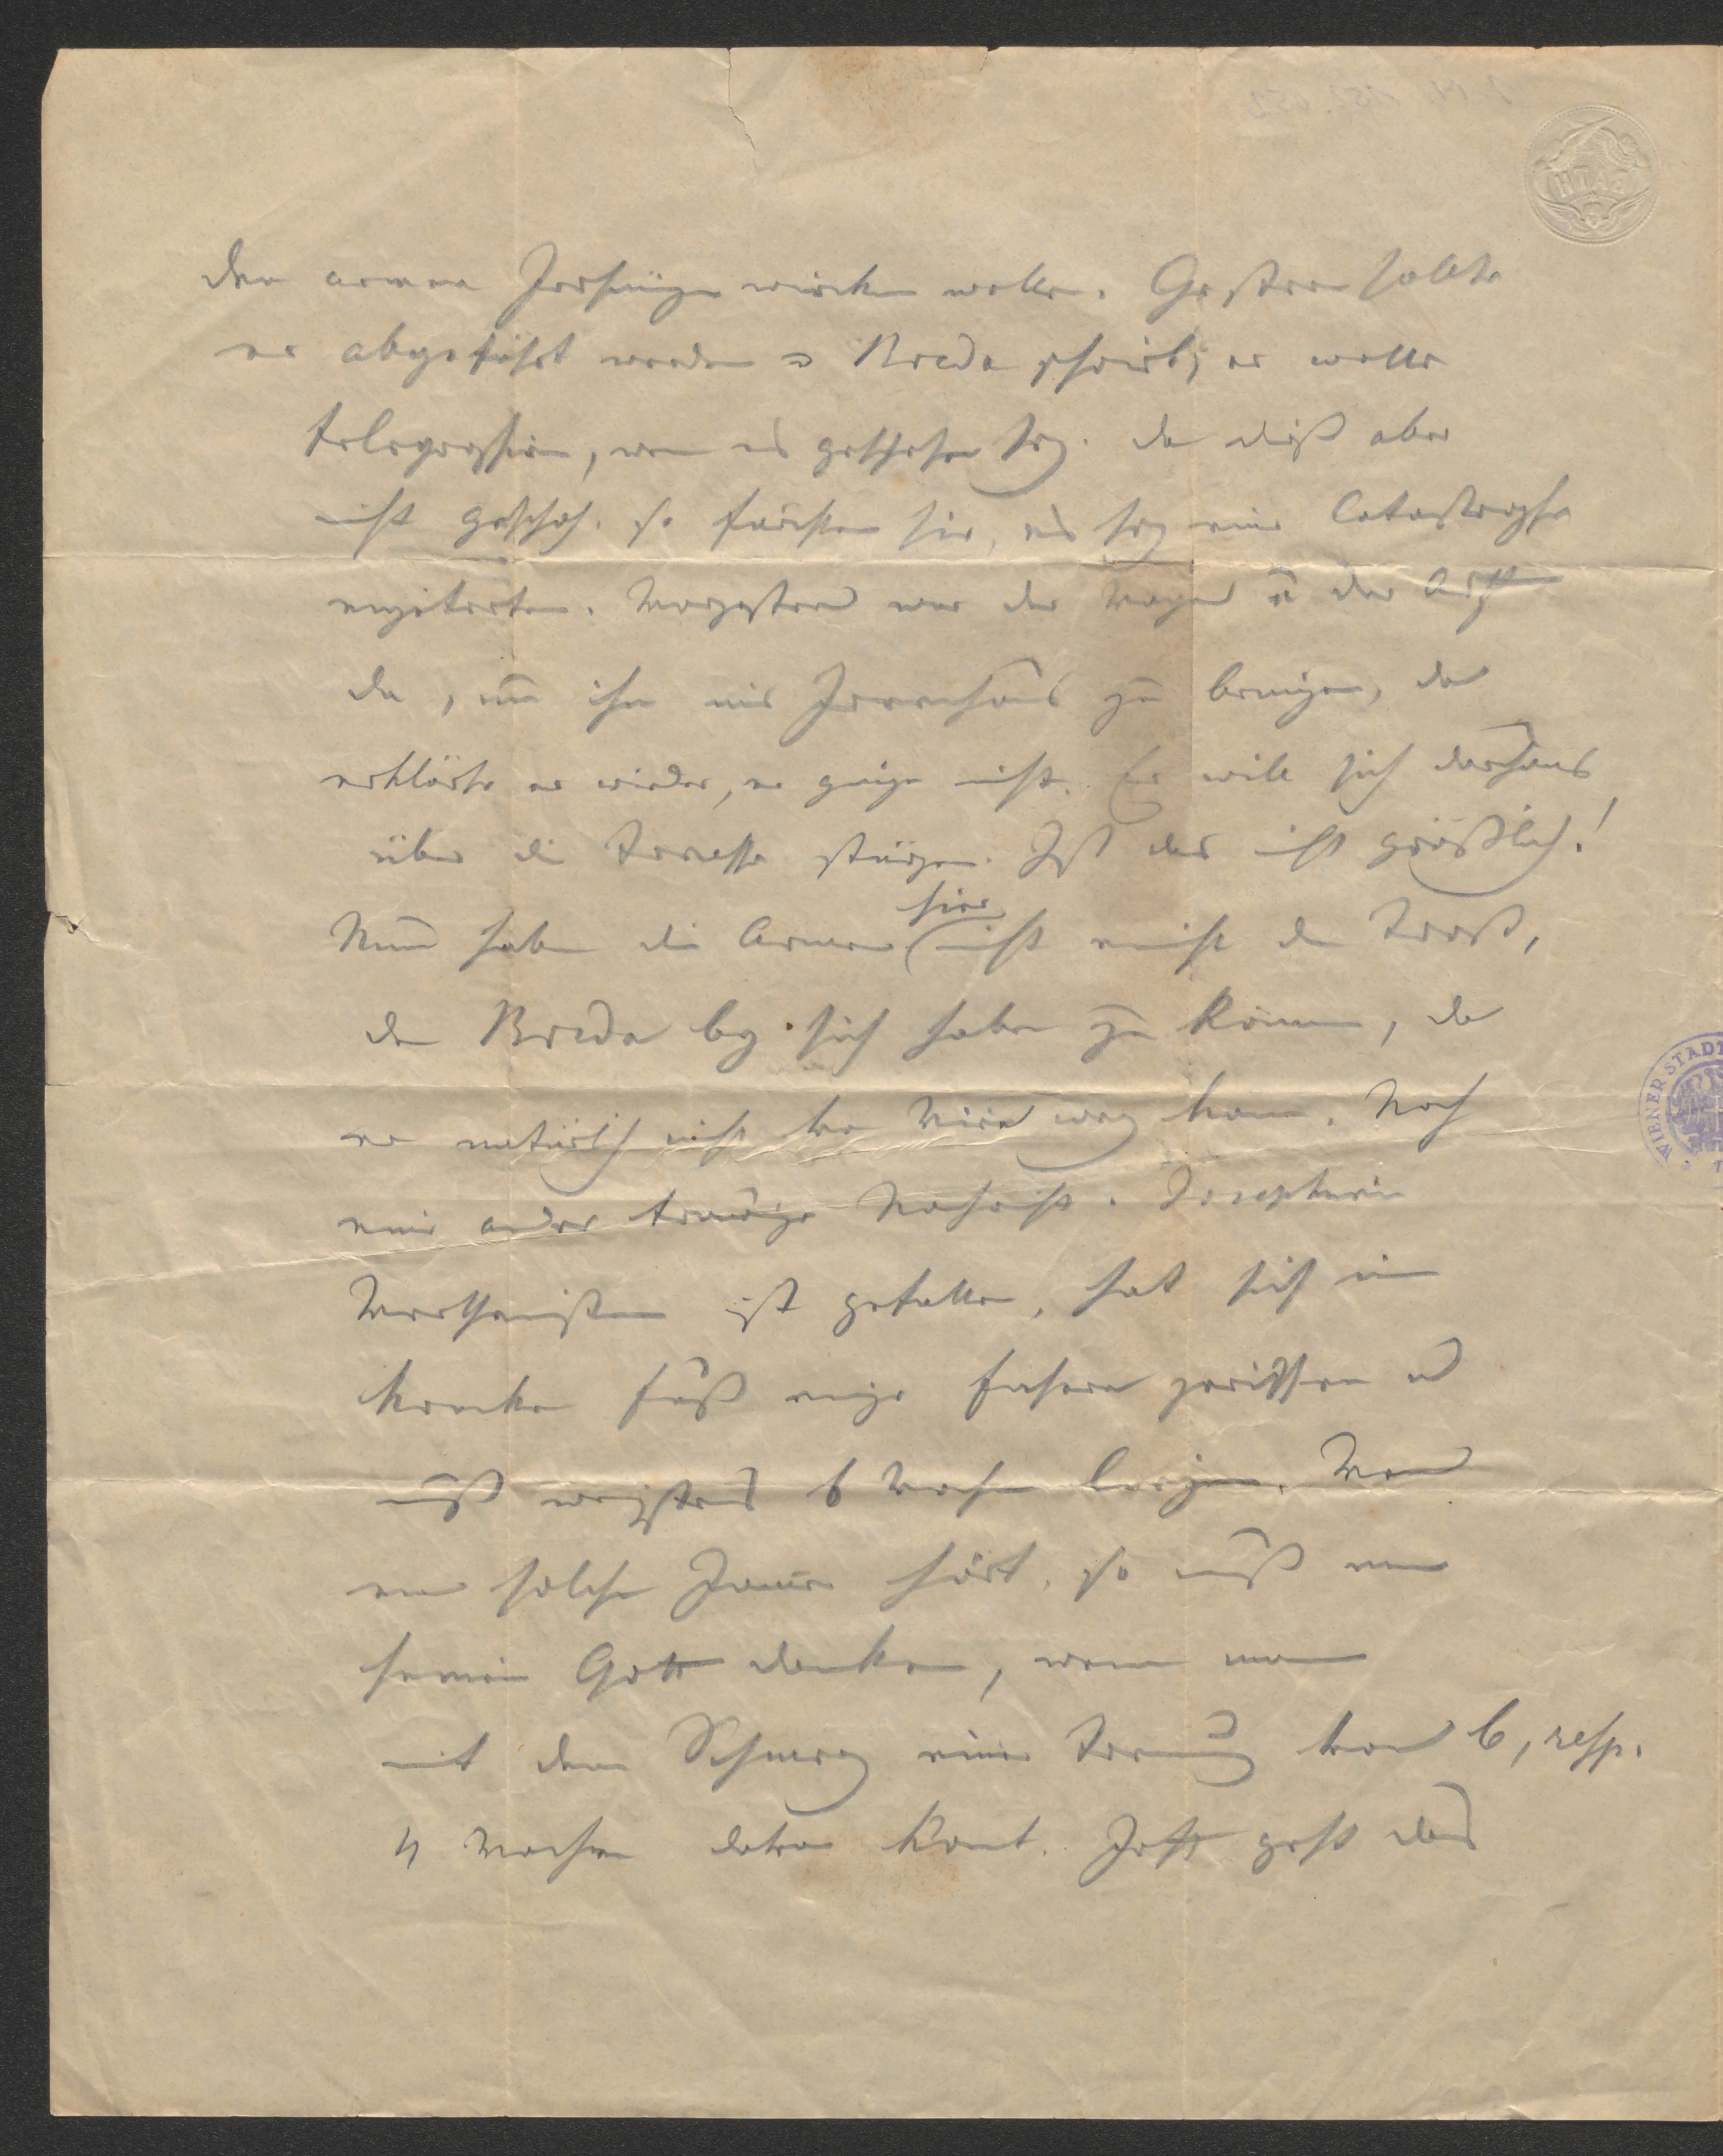 den armen Irrsinnigen wirken wollen. Gestern sollte
er abgeführt werden u Breda schrieb, er wolle
telegraphiren, wenn es geschehen sey. da dieß aber
nicht geschah, so fürchten sie, es sey eine Catastrophe
eingetreten. Vorgestern war der Wagen u der Arzt
da, um ihn ins Irrenhaus zu bringen, da
erklärte er wieder, er ginge nicht. Er will sich durchaus
über die Terrasse stürzen. Ist das nicht gräßlich!
Nun haben die Armen hier nicht einmal den Trost,
den Breda bey sich haben zu können, da
er natürlich nicht von Wien weg kann. Noch
eine andere traurige Nachricht. Josephine
Wertheimstein ist gefallen, hat sich im
kranken Fuß einige Fasern zerrissen u
muß wenigstens 6 Wochen liegen. Wenn
man solchen Jammer hört, so muß man
seinem Gott danken, wenn man
mit dem Schmerz einer Trennung von 6, resp.
4 Wochen davon kommt. Jetzt geht das
WIENER STADT